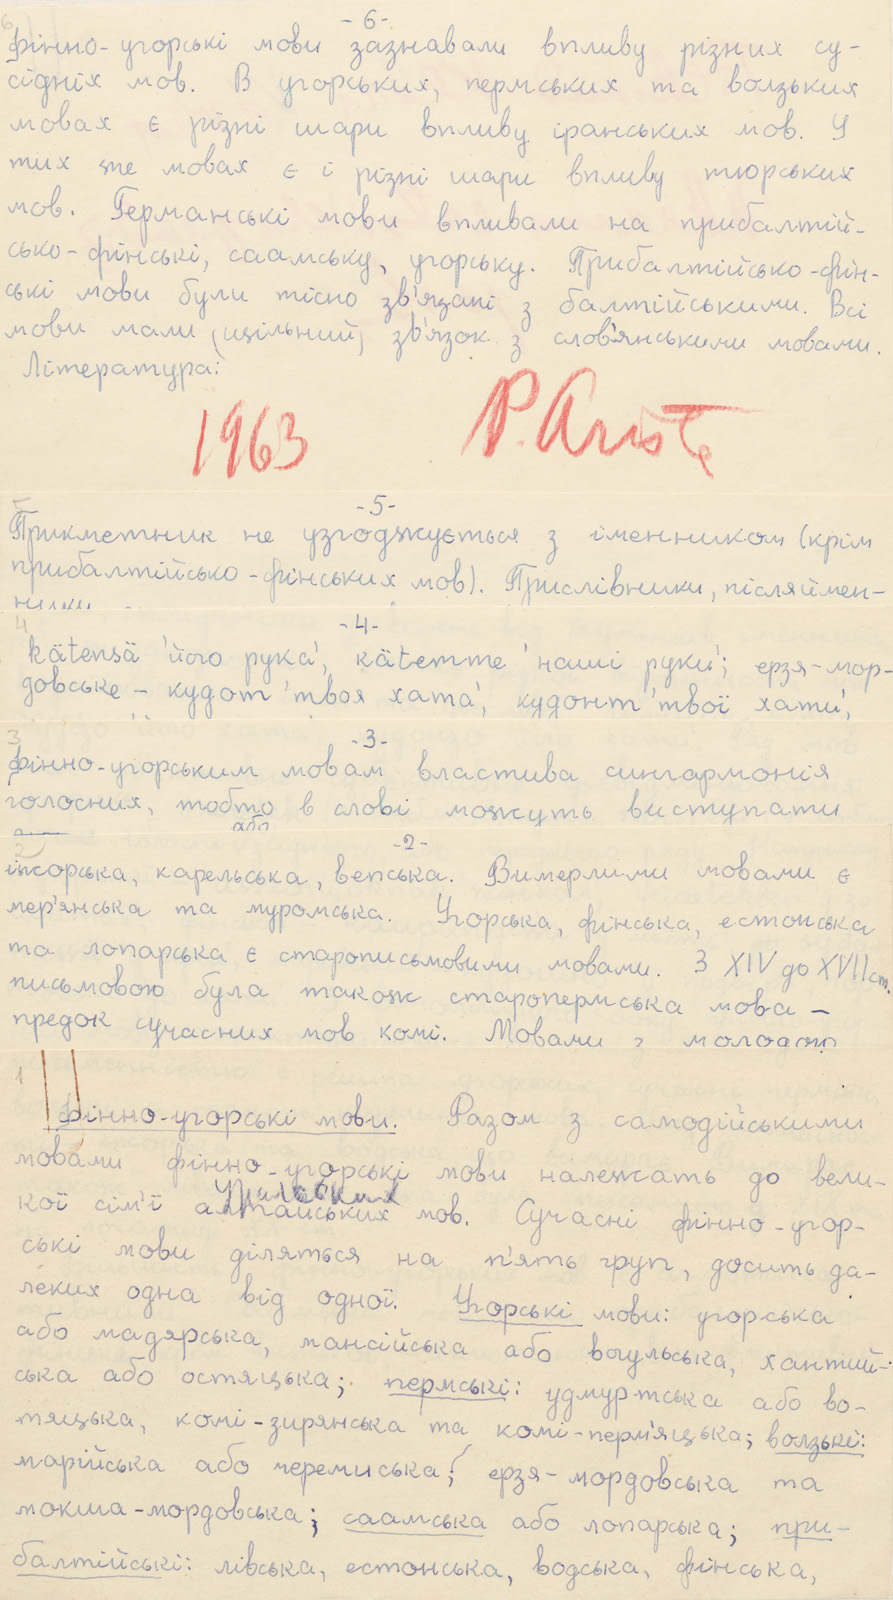 6
-6-
фінно-угорські мови зазнавали впливу різних су-
сідніх мов. В угорських, пермських та волзьких
мовах є різні шари впливу іранських мов. У
тих же мовах є і різні шари впливу тюрських
мов. Германські мови впливали на прибалтій-
сько-фінські, саамську, угорську. Прибалтійсько-фін-
ські мови були тісно зв'язані з балтійськими. Всі
мови мали (щільний) зв'язок з слов'янськими мовами.
Література:
1963 P. Ariste
5
-5-
Прикметник не узгоджується з іменником (крім
прибалтійсько-фінських мов). Прислівники, післяймен-
ники
4
-4-
kätensä 'його рука', kätemme 'наші руки'; ерзя-мор-
довське – кудот 'твоя хата', кудонт 'твої хати',
3
-3-
фінно-угорським мовам властива сингармонія
голосних, тобто в слові можуть виступати
або
2
-2-
іжорська, карельська, вепська. Вимерлими мовами є
мер'янська та муромська. Угорська, фінська, естонська
та лопарська є старописьмовими мовами. З XIV до XVII ст.
письмовою була також старопермська мова –
предок сучасних мов комі. Мовами з молодою
1
Фінно-угорські мови. Разом з самодійськими
мовами фінно-угорські мови належать до вели-
Уральских
кої сім'ї алтайських мов. Сучасні фінно-угор-
ські мови діляться на п'ять груп, досить да-
леких одна від одної. Угорські мови: угорська
або мадярська, мансійська або вогульська, хантий-
ська або остяцька; пермські: удмуртська або во-
тяцька, комі-зирянська та комі-перм'яцька; волзькі:
марійська або черемиська; ерзя-мордовська та
мокша-мордовська; саамська або лопарська; при-
балтійські: лівська, естонська, водська, фінська,